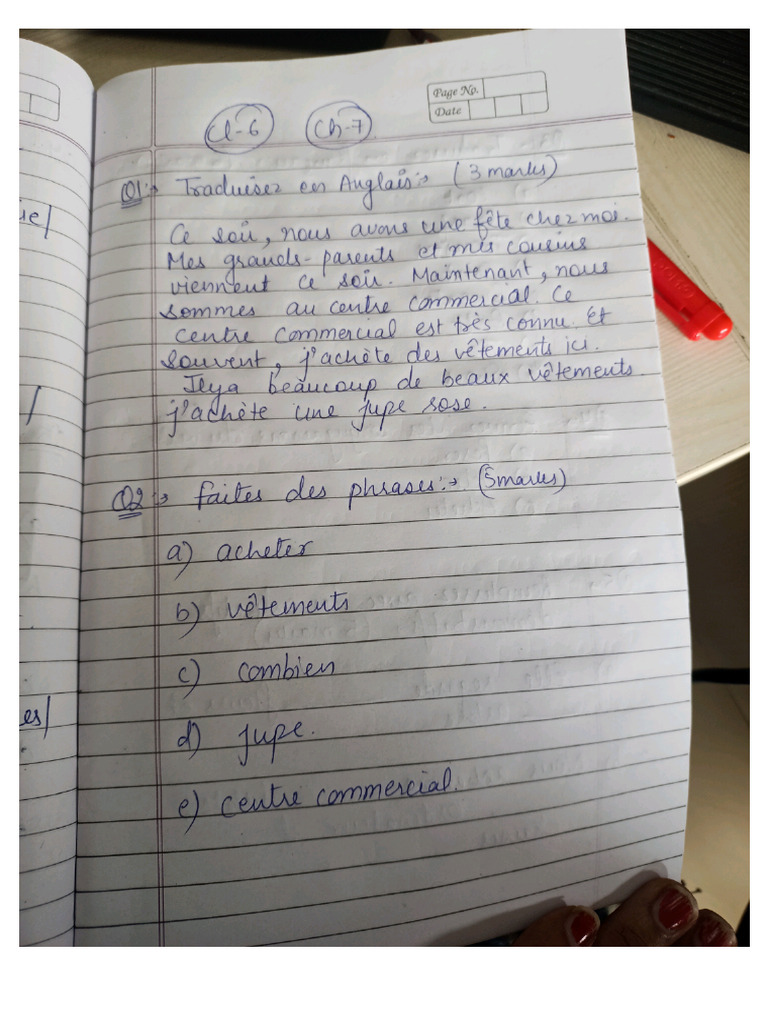 Page No.
Date
Cl-6 Ch-7
Q1:→ Traduisez en Anglais:→ (3 marks)
Ce soir, nous avons une fête chez moi.
Mes grands-parents et mes cousins
viennent ce soir. Maintenant, nous
sommes au centre commercial. Ce
centre commercial est très connu. Et
souvent, j'achète des vêtements ici.
Ilya beaucoup de beaux vêtements.
j'achète une jupe rose.
Q2:→ faites des phrases:→ (5marks)
a) acheter
b) vêtements
c) combien
d) jupe.
e) centre commercial.
es/